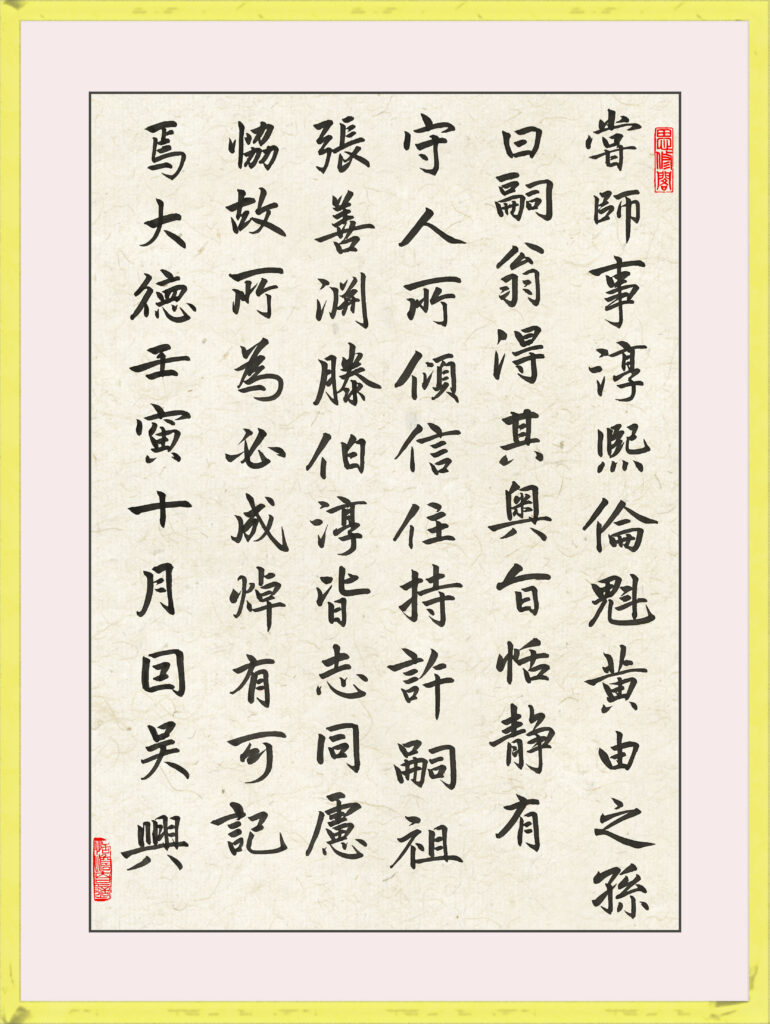 嘗師事淳熙倫魁黄由之孫
曰嗣翁得其奥旨恬静有
守人所傾信住持許嗣祖
張善淵滕伯淳皆志同慮
恊故所為必成焯有可記
焉大德壬寅十月回吴興
思修閣